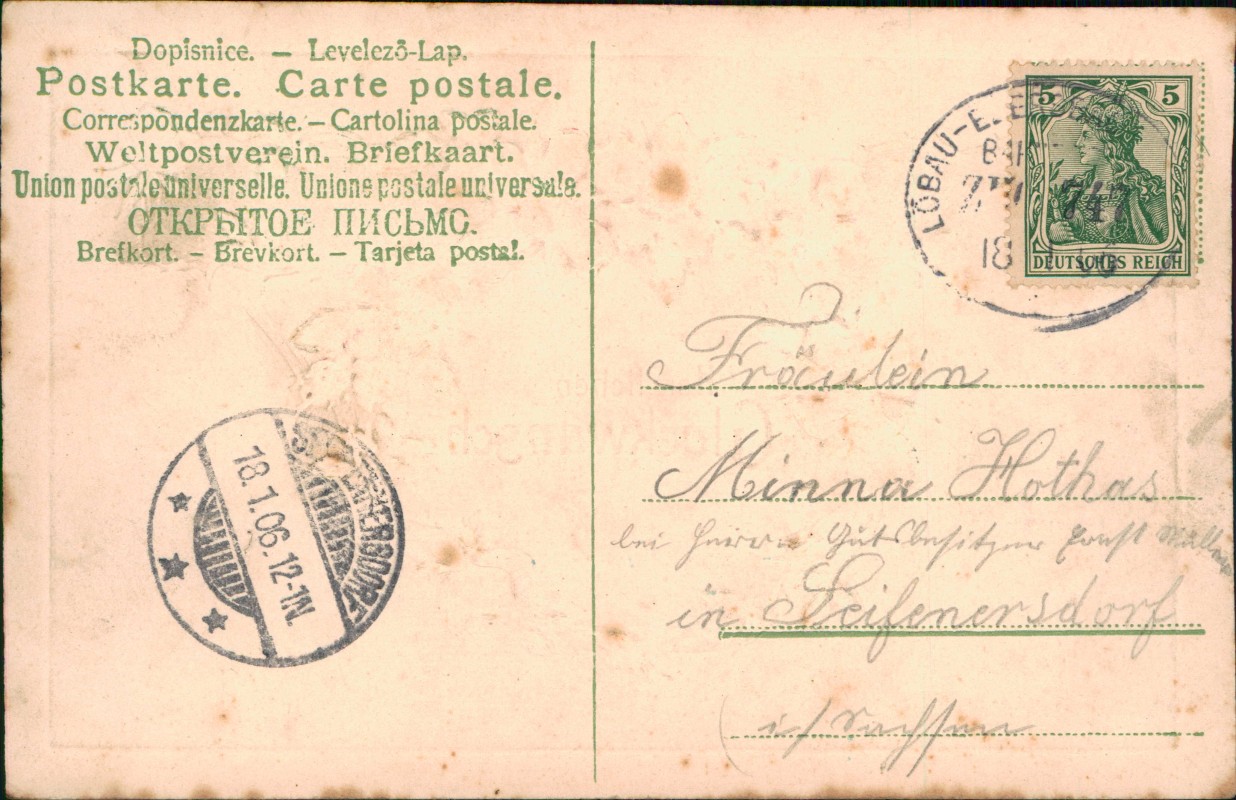 Dopisnice. – Levelező-Lap.
Postkarte. Carte postale.
Correspondenzkarte. – Cartolina postale.
Weltpostverein. Briefkaart.
Union postale universelle. Unione postale universale.
ОТКРЫТОЕ ПИСЬМО.
Brefkort. – Brevkort. – Tarjeta postal.
5 5
DEUTSCHES REICH
LÖBAU-E
BAH
717
18
Fräulein
Minna Hothas
bei Herrn Gutsbesitzer Ernst Müller
in Seifenersdorf
i/Sachsen
SEIFHENNERSDORF
18.1.06.12-1N.